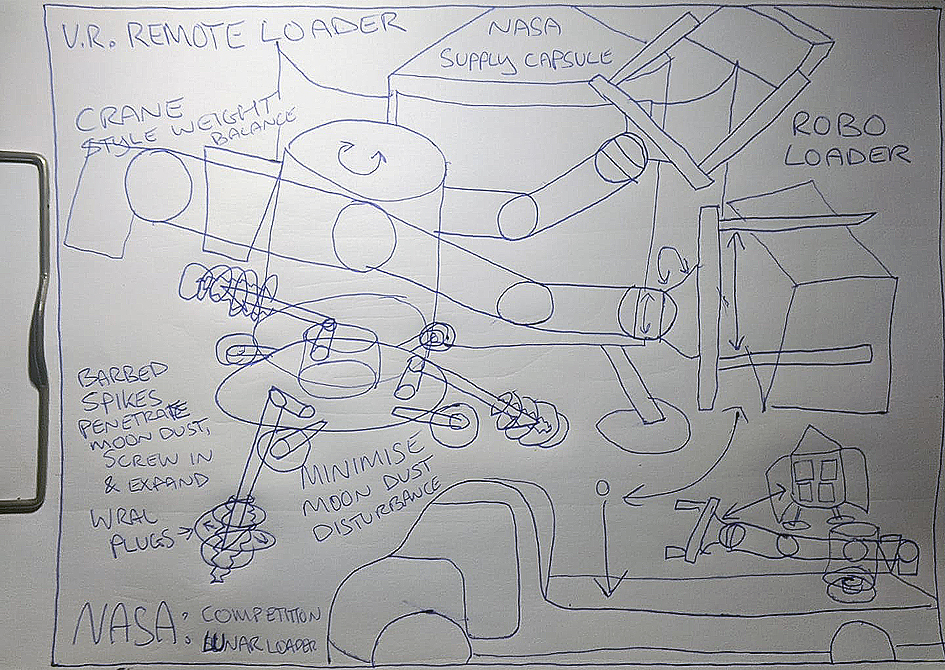 V.R. REMOTE LOADER
NASA
SUPPLY CAPSULE
CRANE
STYLE WEIGHT
BALANCE
ROBO
LOADER
BARBED
SPIKES
PENETRATE
MOON DUST,
SCREW IN
& EXPAND
WRAL
PLUGS
MINIMISE
MOON DUST
DISTURBANCE
NASA: COMPETITION
LUNAR LOADER